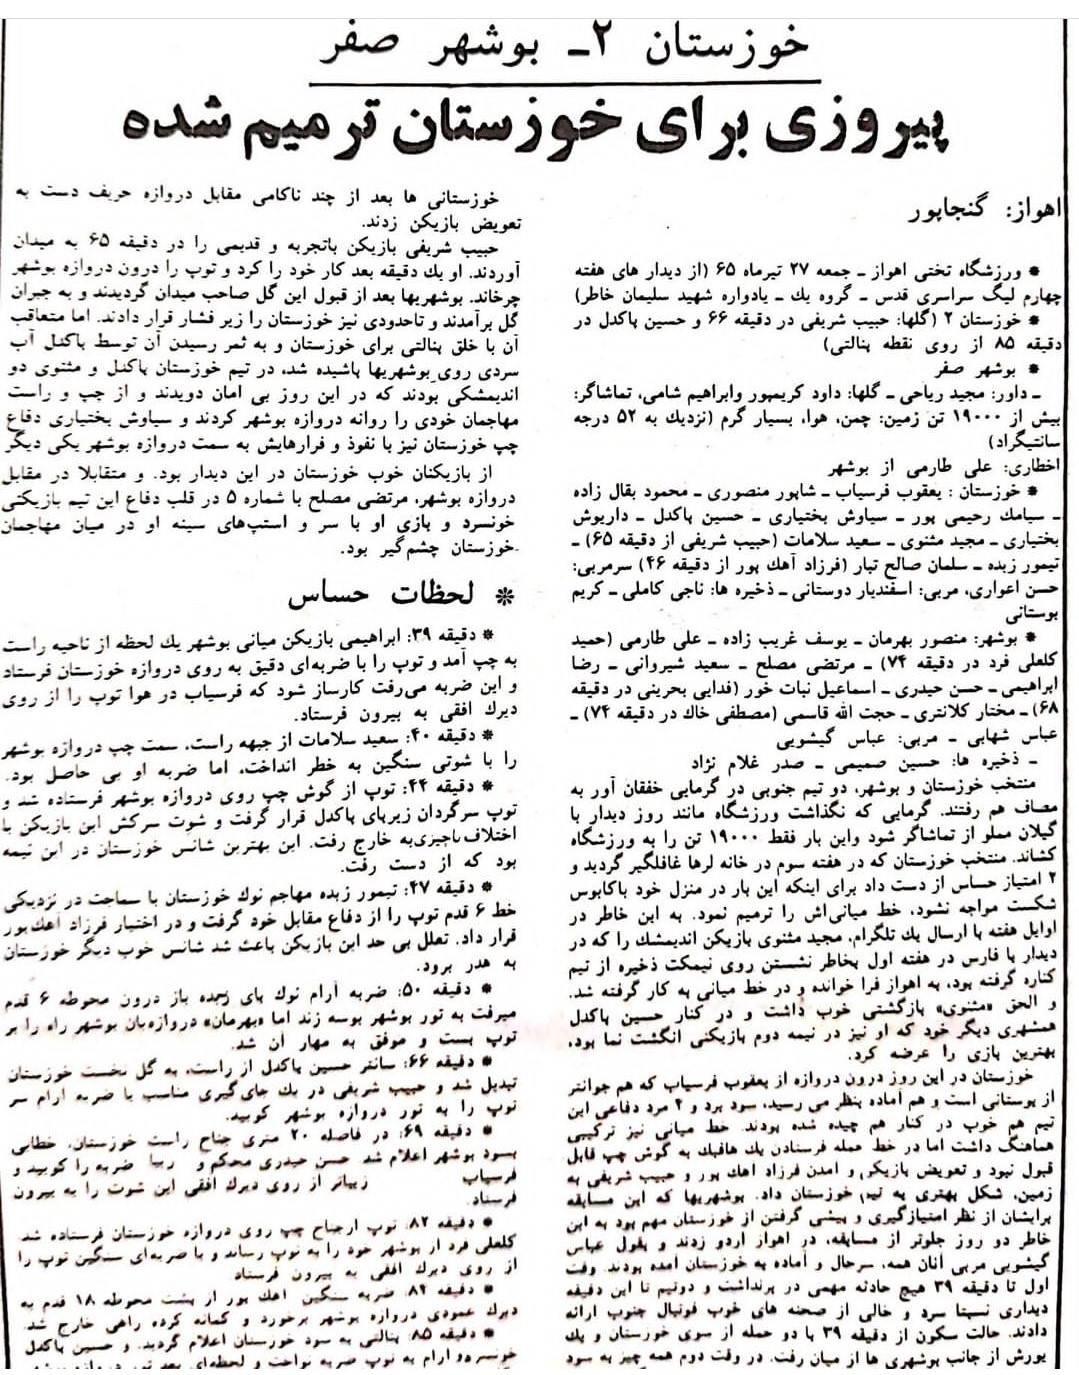 خوزستان ۲ـ بوشهر صفر
پیروزی برای خوزستان ترمیم شده
اهواز: گنجاپور
* ورزشگاه تختی اهواز ـ جمعه ۲۷ تیرماه ۶۵ (از دیدار های هفته
چهارم لیگ سراسری قدس ـ گروه یك ـ یادواره شهید سلیمان خاطر)
* خوزستان ۲ (گلها: حبیب شریفی در دقیقه ۶۶ و حسین پاکدل در
دقیقه ۸۵ از روی نقطه پنالتی)
* بوشهر صفر
ـ داور: مجید ریاحی ـ گلها: داود کریمپور وابراهیم شامی، تماشاگر:
بیش از ۱۹۰۰۰ تن زمین: چمن، هوا، بسیار گرم (نزدیك به ۵۲ درجه
سانتیگراد)
اخطاری: علی طارمی از بوشهر
* خوزستان : یعقوب فرسیاب ـ شاپور منصوری ـ محمود بقال زاده
ـ سیامك رحیمی پور ـ سیاوش بختیاری ـ حسین پاکدل ـ داریوش
بختیاری ـ مجید مثنوی ـ سعید سلامات (حبیب شریفی از دقیقه ۶۵) ـ
تیمور زبده ـ سلمان صالح تبار (فرزاد آهك پور از دقیقه ۴۶) سرمربی:
حسن اعواری، مربی: اسفندیار دوستانی ـ ذخیره ها: ناجی کاملی ـ کریم
بوستانی
* بوشهر: منصور بهرمان ـ یوسف غریب زاده ـ علی طارمی (حمید
کلعلی فرد در دقیقه ۷۴) ـ مرتضی مصلح ـ سعید شیروانی ـ رضا
ابراهیمی ـ حسن حیدری ـ اسماعیل نبات خور (فدایی بحرینی در دقیقه
۶۸) ـ مختار کلانتری ـ حجت الله قاسمی (مصطفی خاك در دقیقه ۷۴) ـ
عباس شهابی ـ مربی: عباس گیشویی
ـ ذخیره ها: حسین صمیمی ـ صدر غلام نژاد
منتخب خوزستان و بوشهر، دو تیم جنوبی در گرمایی خفقان آور به
مصاف هم رفتند. گرمایی که نگذاشت ورزشگاه مانند روز دیدار با
گیلان مملو از تماشاگر شود واین بار فقط ۱۹۰۰۰ تن را به ورزشگاه
کشاند. منتخب خوزستان که در هفته سوم در خانه لرها غافلگیر گردید و
۲ امتیاز حساس از دست داد برای اینکه این بار در منزل خود باکابوس
شکست مواجه نشود، خط میانی‌اش را ترمیم نمود. به این خاطر در
اوایل هفته با ارسال یك تلگرام، مجید مثنوی بازیکن اندیمشك را که در
دیدار با فارس در هفته اول بخاطر نشستن روی نیمکت ذخیره از تیم
کناره گرفته بود، به اهواز فرا خوانده و در خط میانی به کار گرفته شد.
و الحق «مثنوی» بازگشتی خوب داشت و در کنار حسین پاکدل
همشهری دیگر خود که او نیز در نیمه دوم بازیکنی انگشت نما بود،
بهترین بازی را عرضه کرد.
خوزستان در این روز درون دروازه از یعقوب فرسیاب که هم جوانتر
از بوستانی است و هم آماده بنظر می رسید، سود برد و ۴ مرد دفاعی این
تیم هم خوب در کنار هم چیده شده بودند. خط میانی نیز ترکیبی
هماهنگ داشت اما در خط حمله فرستادن یك هافبك به گوش چپ قابل
قبول نبود و تعویض بازیکن و آمدن فرزاد آهك پور و حبیب شریفی به
زمین، شکل بهتری به تیم خوزستان داد. بوشهریها که این مسابقه
برایشان از نظر امتیازگیری و پیشی گرفتن از خوزستان مهم بود به این
خاطر دو روز جلوتر از مسابقه، در اهواز اردو زدند و بقول عباس
گیشویی مربی آنان همه، سرحال و آماده به خوزستان آمده بودند. وقت
اول تا دقیقه ۳۹ هیچ حادثه مهمی در برنداشت و دوتیم تا این دقیقه
دیداری نسبتا سرد و خالی از صحنه های خوب فوتبال جنوب ارائه
دادند. حالت سکون از دقیقه ۳۹ با دو حمله از سوی خوزستان و یك
یورش از جانب بوشهری ها از میان رفت. در وقت دوم همه چیز به سود
خوزستانی ها بعد از چند ناکامی مقابل دروازه حریف دست به
تعویض بازیکن زدند.
حبیب شریفی بازیکن باتجربه و قدیمی را در دقیقه ۶۵ به میدان
آوردند. او یك دقیقه بعد کار خود را کرد و توپ را درون دروازه بوشهر
چرخاند. بوشهریها بعد از قبول این گل صاحب میدان گردیدند و به جبران
گل برآمدند و تاحدودی نیز خوزستان را زیر فشار قرار دادند. اما متعاقب
آن با خلق پنالتی برای خوزستان و به ثمر رسیدن آن توسط پاکدل آب
سردی روی بوشهریها پاشیده شد، در تیم خوزستان پاکدل و مثنوی دو
اندیمشکی بودند که در این روز بی امان دویدند و از چپ و راست
مهاجمان خودی را روانه دروازه بوشهر کردند و سیاوش بختیاری دفاع
چپ خوزستان نیز با نفوذ و فرارهایش به سمت دروازه بوشهر یکی دیگر
از بازیکنان خوب خوزستان در این دیدار بود. و متقابلا در مقابل
دروازه بوشهر، مرتضی مصلح با شماره ۵ در قلب دفاع این تیم بازیکنی
خونسرد و بازی او با سر و استپ‌های سینه او در میان مهاجمان
خوزستان چشم‌گیر بود.
* لحظات حساس
* دقیقه ۳۹: ابراهیمی بازیکن میانی بوشهر یك لحظه از ناحیه راست
به چپ آمد و توپ را با ضربه‌ای دقیق به روی دروازه خوزستان فرستاد
و این ضربه می‌رفت کارساز شود که فرسیاب در هوا توپ را از روی
دیرك افقی به بیرون فرستاد.
* دقیقه ۴۰: سعید سلامات از جبهه راست، سمت چپ دروازه بوشهر
را با شوتی سنگین به خطر انداخت، اما ضربه او بی حاصل بود.
* دقیقه ۴۴: توپ از گوش چپ روی دروازه بوشهر فرستاده شد و
توپ سرگردان زیرپای پاکدل قرار گرفت و شوت سرکش این بازیکن با
اختلاف ناچیزی به خارج رفت. این بهترین شانس خوزستان در این نیمه
بود که از دست رفت.
* دقیقه ۴۷: تیمور زبده مهاجم نوك خوزستان با سماجت در نزدیکی
خط ۶ قدم توپ را از دفاع مقابل خود گرفت و در اختیار فرزاد آهك‌پور
قرار داد. تعلل بی حد این بازیکن باعث شد شانس خوب دیگر خوزستان
به هدر برود.
* دقیقه ۵۰: ضربه آرام نوك پای زبده باز درون محوطه ۶ قدم
میرفت به تور بوشهر بوسه زند اما «بهرمان» دروازه‌بان بوشهر راه را بر
توپ بست و موفق به مهار آن شد.
* دقیقه ۶۶: سانتر حسین پاکدل از راست، به گل نخست خوزستان
تبدیل شد و حبیب شریفی در یك جای‌گیری مناسب با ضربه آرام سر
توپ را به تور دروازه بوشهر کوبید.
* دقیقه ۶۹: در فاصله ۲۰ متری جناح راست خوزستان، خطایی
بسود بوشهر اعلام شد حسن حیدری محکم و زیبا ضربه را کوبید و
فرسیاب زیباتر از روی دیرك افقی این شوت را به بیرون
فرستاد.
* دقیقه ۸۲: توپ ازجناح چپ روی دروازه خوزستان فرستاده شد
کلعلی فرد از بوشهر خود را به توپ رساند و با ضربه‌ای سنگین توپ را
از روی دیرك افقی به بیرون فرستاد
* دقیقه ۸۴: ضربه سنگین آهك پور از پشت محوطه ۱۸ قدم به
دیرك عمودی دروازه بوشهر برخورد و کمانه کرده راهی خارج شد.
* دقیقه ۸۵: پنالتی به سود خوزستان اعلام گردید. و حسین پاکدل
خونسرد و آرام به توپ ضربه نواخت و لحظه‌ای بعد تور دروازه